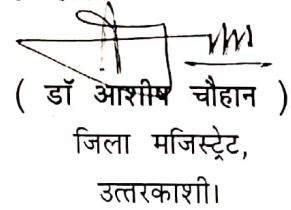 ( डॉ आशीष चौहान )
जिला मजिस्ट्रेट,
उत्तरकाशी।